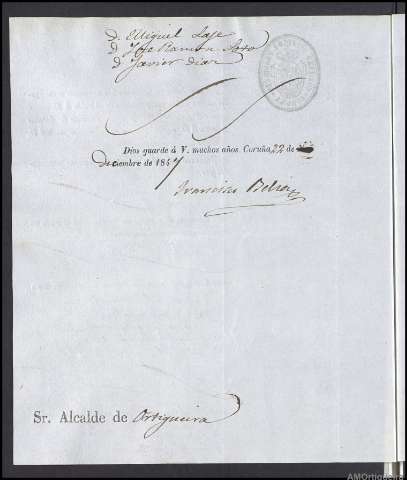 D. Miguel Lage
D. José Ramon Soto
D. Javier Diaz
Dios guarde á V. muchos años Coruña 22 de
Diciembre de 1847
Francisco
Sr. Alcalde de Ortigueira
AMOrtigueira